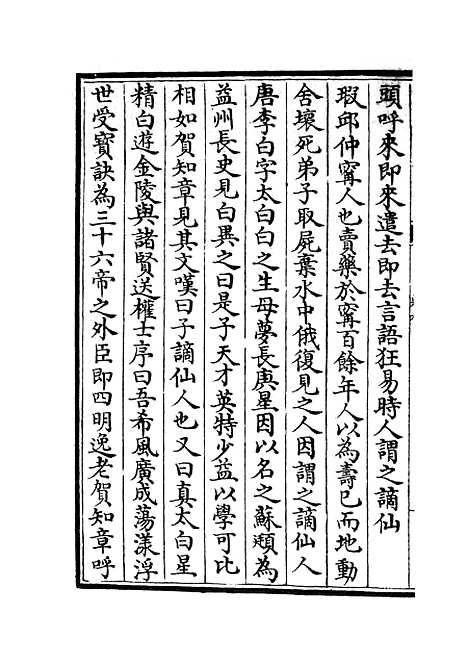 頭呼來即來遣去即去言語狂易時人謂之謫仙
瑕邱仲甯人也賣藥於甯百餘年人以為壽已而地動
舍壞死弟子取屍棄水中俄復見之人因謂之謫仙人
唐李白字太白白之生母夢長庚星因以名之蘇頲為
益州長史見白異之曰是子天才英特少益以學可比
相如賀知章見其文嘆曰子謫仙人也又曰真太白星
精白遊金陵與諸賢送權士序曰吾希風廣成蕩漾浮
世受寳訣為三十六帝之外臣即四明逸老賀知章呼